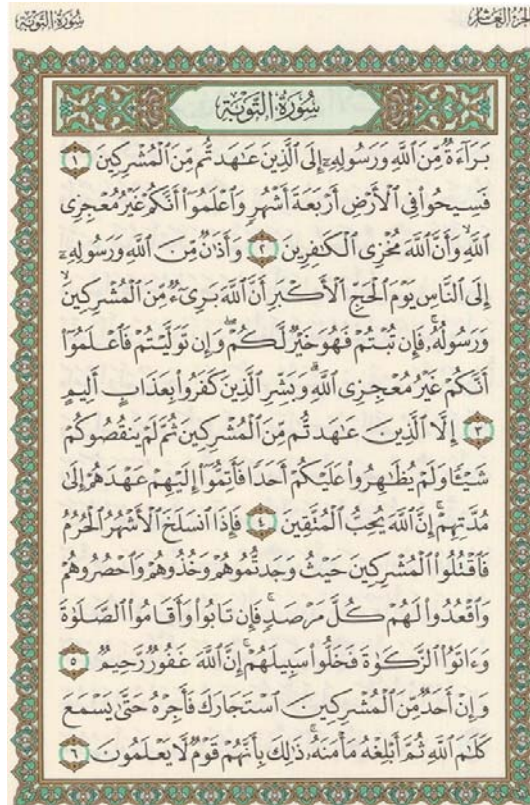 سُورَةُ التَّوۡبَةِ
الجُزءُ العَاشِر
سُورَةُ التَّوۡبَةِ
بَرَآءَةٌ مِّنَ ٱللَّهِ وَرَسُولِهِۦٓ إِلَى ٱلَّذِينَ عَٰهَدتُّم مِّنَ ٱلۡمُشۡرِكِينَ ١
فَسِيحُواْ فِي ٱلۡأَرۡضِ أَرۡبَعَةَ أَشۡهُرٖ وَٱعۡلَمُوٓاْ أَنَّكُمۡ غَيۡرُ مُعۡجِزِي
ٱللَّهِ وَأَنَّ ٱللَّهَ مُخۡزِي ٱلۡكَٰفِرِينَ ٢ وَأَذَٰنٞ مِّنَ ٱللَّهِ وَرَسُولِهِۦٓ
إِلَى ٱلنَّاسِ يَوۡمَ ٱلۡحَجِّ ٱلۡأَكۡبَرِ أَنَّ ٱللَّهَ بَرِيٓءٞ مِّنَ ٱلۡمُشۡرِكِينَ
وَرَسُولُهُۥۚ فَإِن تُبۡتُمۡ فَهُوَ خَيۡرٞ لَّكُمۡۖ وَإِن تَوَلَّيۡتُمۡ فَٱعۡلَمُوٓاْ
أَنَّكُمۡ غَيۡرُ مُعۡجِزِي ٱللَّهِۗ وَبَشِّرِ ٱلَّذِينَ كَفَرُواْ بِعَذَابٍ أَلِيمٍ
٣ إِلَّا ٱلَّذِينَ عَٰهَدتُّم مِّنَ ٱلۡمُشۡرِكِينَ ثُمَّ لَمۡ يَنقُصُوكُمۡ
شَيۡـٔٗا وَلَمۡ يُظَٰهِرُواْ عَلَيۡكُمۡ أَحَدٗا فَأَتِمُّوٓاْ إِلَيۡهِمۡ عَهۡدَهُمۡ إِلَىٰ
مُدَّتِهِمۡۚ إِنَّ ٱللَّهَ يُحِبُّ ٱلۡمُتَّقِينَ ٤ فَإِذَا ٱنسَلَخَ ٱلۡأَشۡهُرُ ٱلۡحُرُمُ
فَٱقۡتُلُواْ ٱلۡمُشۡرِكِينَ حَيۡثُ وَجَدتُّمُوهُمۡ وَخُذُوهُمۡ وَٱحۡصُرُوهُمۡ
وَٱقۡعُدُواْ لَهُمۡ كُلَّ مَرۡصَدٖۚ فَإِن تَابُواْ وَأَقَامُواْ ٱلصَّلَوٰةَ
وَءَاتَوُاْ ٱلزَّكَوٰةَ فَخَلُّواْ سَبِيلَهُمۡۚ إِنَّ ٱللَّهَ غَفُورٞ رَّحِيمٞ ٥
وَإِنۡ أَحَدٞ مِّنَ ٱلۡمُشۡرِكِينَ ٱسۡتَجَارَكَ فَأَجِرۡهُ حَتَّىٰ يَسۡمَعَ
كَلَٰمَ ٱللَّهِ ثُمَّ أَبۡلِغۡهُ مَأۡمَنَهُۥۚ ذَٰلِكَ بِأَنَّهُمۡ قَوۡمٞ لَّا يَعۡلَمُونَ ٦